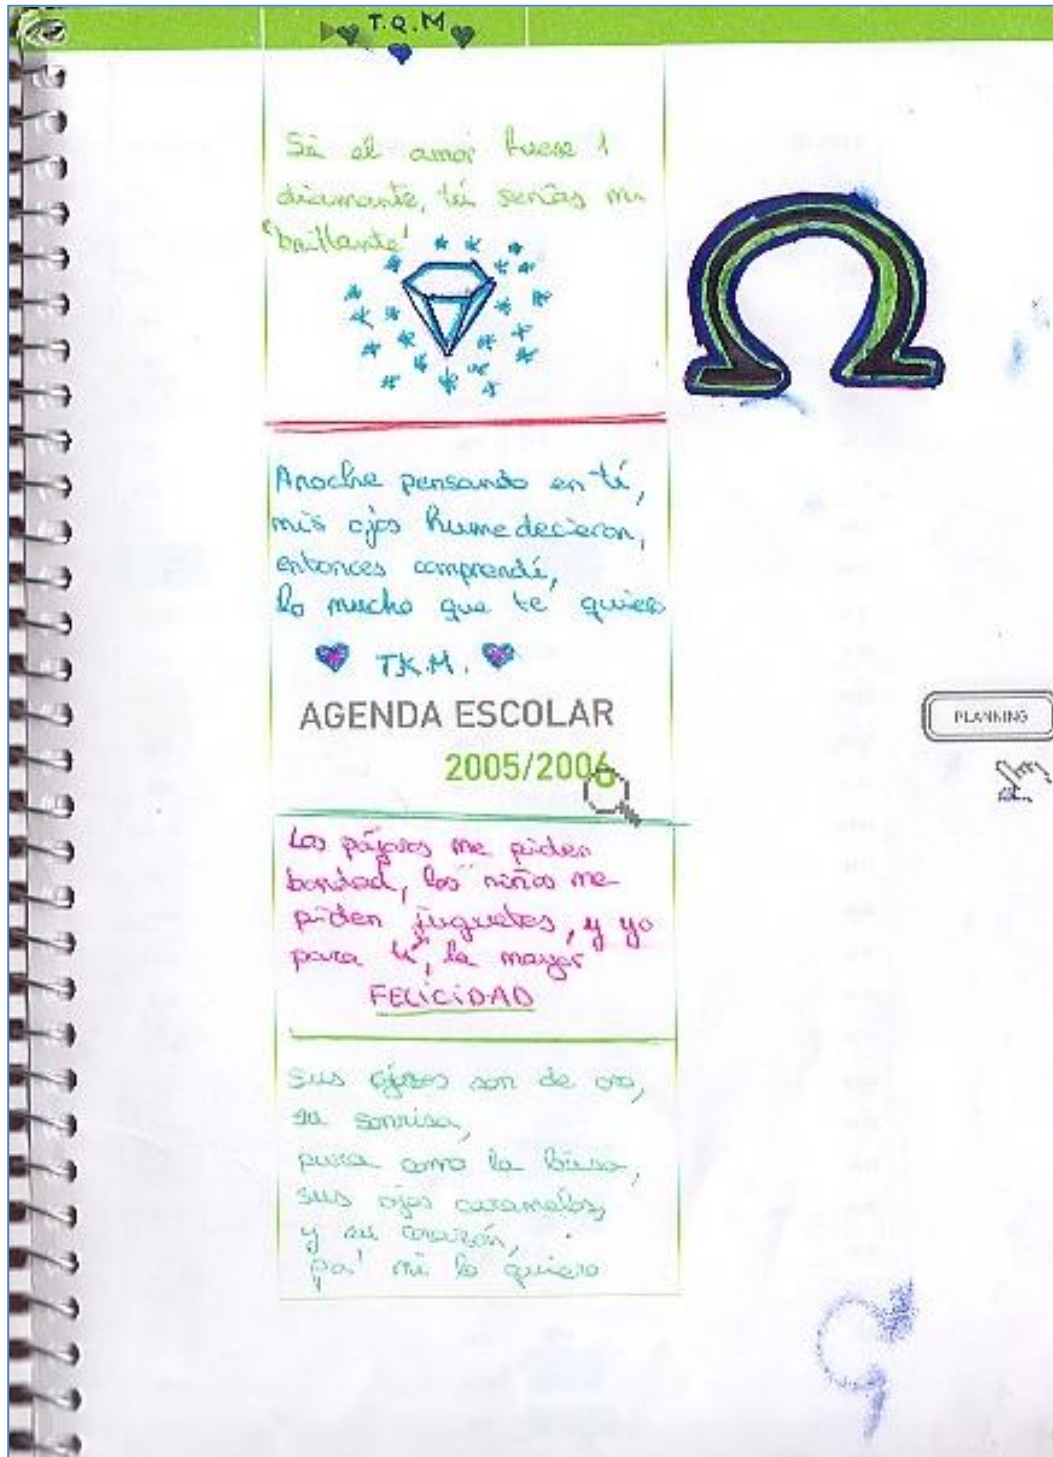 T.Q.M
Si el amor fuese 1
diamante, tú serías mi
"brillante"
Anoche pensando en tí,
mis ojos humedecieron,
entonces comprendí,
lo mucho que te quiero
T.K.M.
AGENDA ESCOLAR
2005/2006
PLANNING
Los pájaros me piden
bondad, los niños me
piden juguetes, y yo
para ti, la mayor
FELICIDAD
Sus son de oro,
su sonrisa,
pura como la brisa,
sus ojos caramelos,
y su corazón,
pa' mi lo quiero